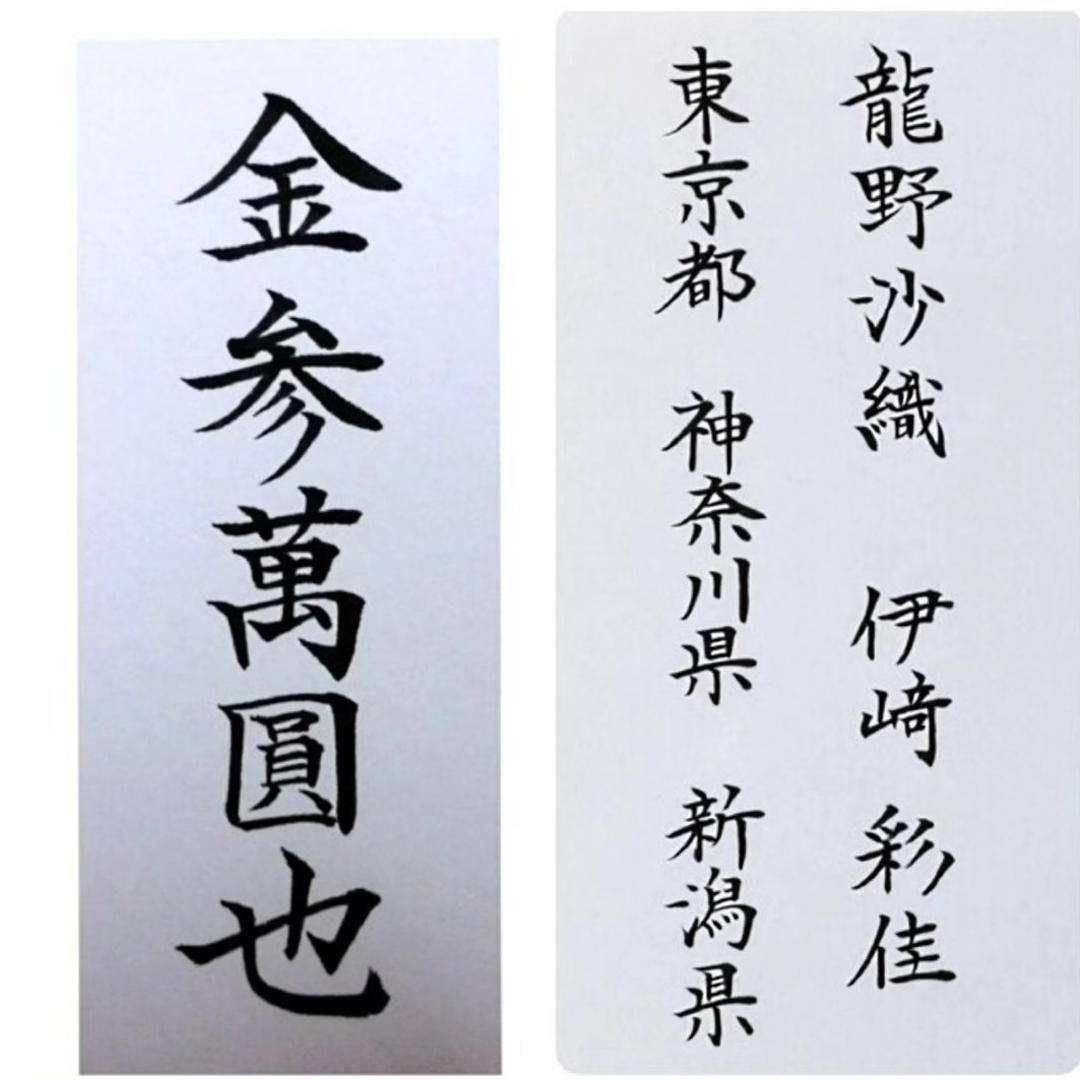 金参萬圓也
龍野沙織 伊﨑 彩佳
東京都 神奈川県 新潟県